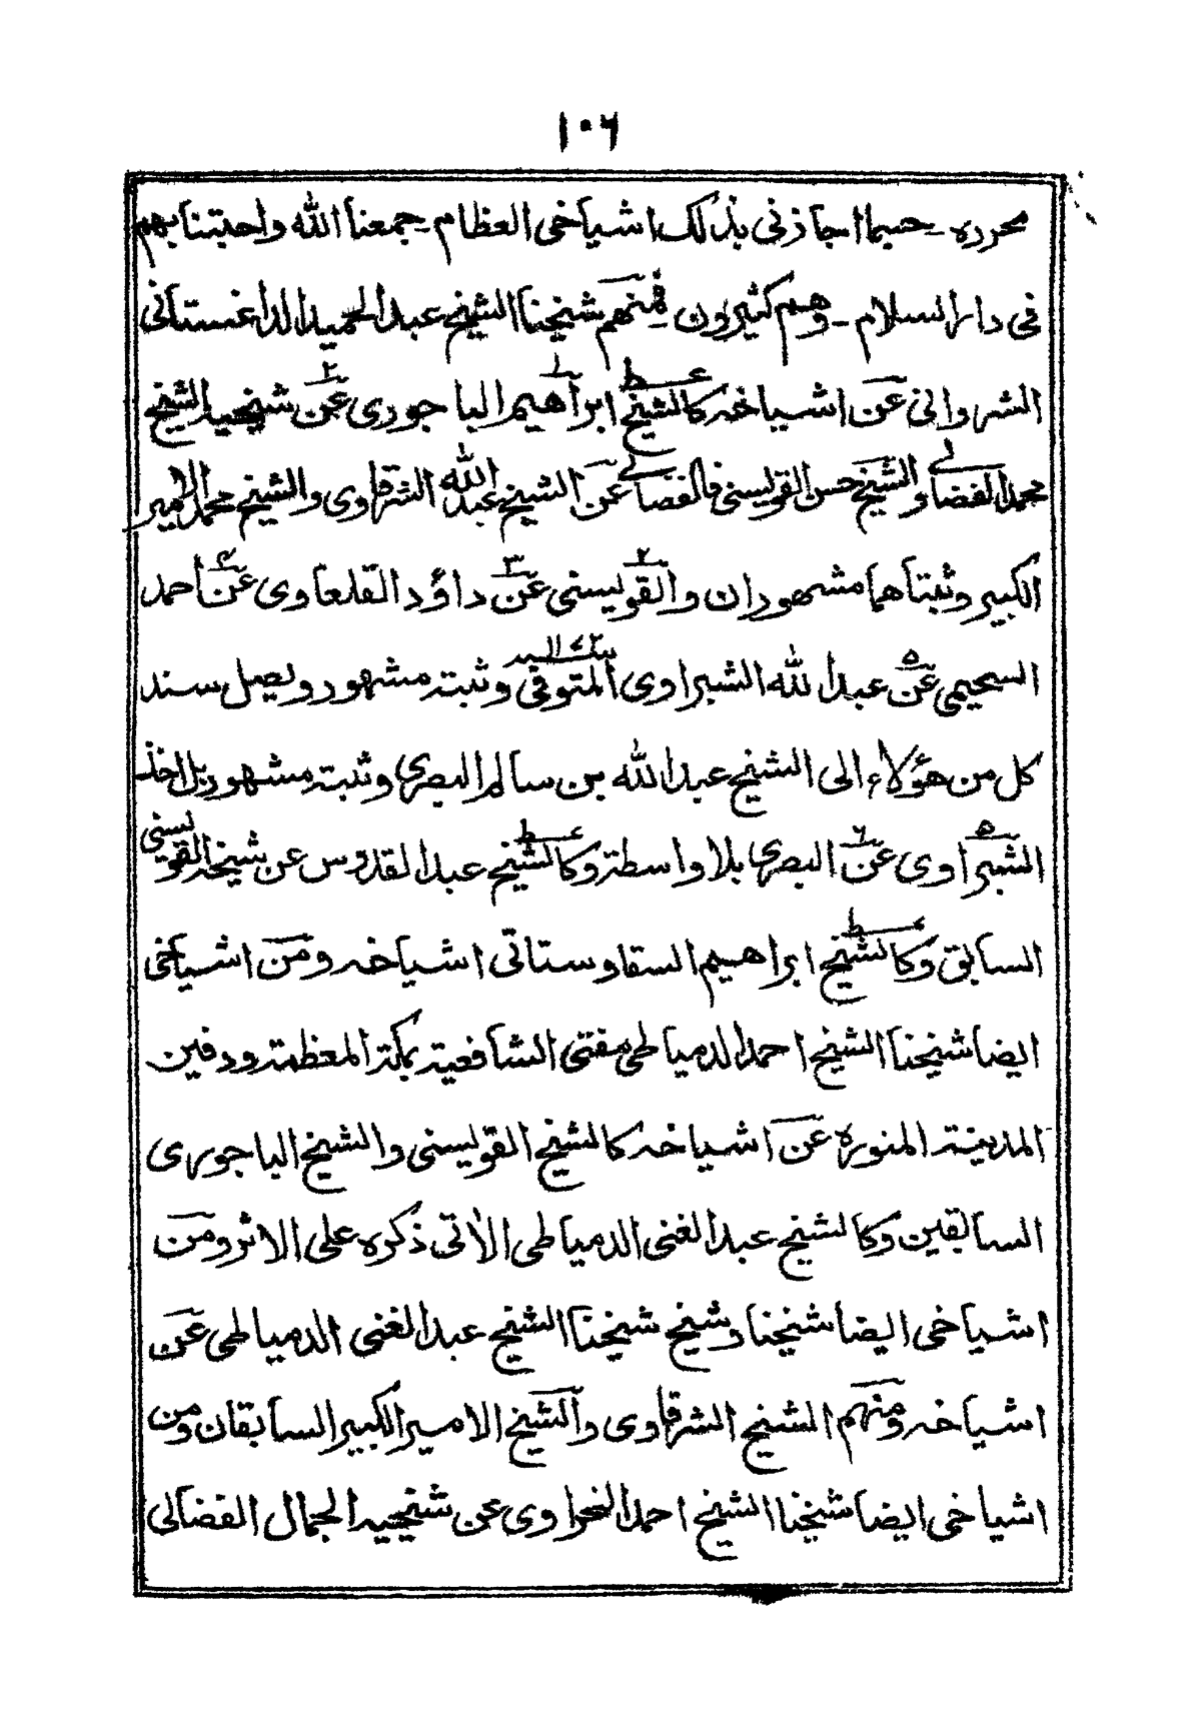 ١٠٦
محرره ـ حسبما اجازنى بذلك اشياخى العظام ـ جمعنا الله واحبتنا بهم
فى دار السلام ـ وهم كثيرون ـ فمنهم شيخنا الشيخ عبد الحميد الداغستانى
الشروانى عن اشياخه كالشيخ ابراهيم الباجورى عن شيخيه الشيخ
محمد الفضالى والشيخ حسن القويسنى فالفضالى عن الشيخ عبد الله الشرقاوى والشيخ محمد الامير
الكبير وثبتاهما مشهوران والقويسنى عن داؤد القلعاوى عن أحمد
السحيمى عن عبد الله الشبراوى المتوفى وثبته مشهور ويصل سند
كل من هؤلاء الى الشيخ عبد الله بن سالم البصرى وثبته مشهور بل اخذ
الشبراوى عن البصرى بلا واسطة وكالشيخ عبد القدوس عن شيخه القويسنى
السابق وكالشيخ ابراهيم السقا وستاتى اشياخه ومن اشياخى
ايضا شيخنا الشيخ احمد الدمياطى مفتى الشافعية بمكة المعظمة ودفين
المدينة المنورة عن اشياخه كالشيخ القويسنى والشيخ الباجورى
السابقين وكالشيخ عبد الغنى الدمياطى الآتى ذكره على الاثر ومن
اشياخى ايضا شيخنا وشيخ شيخنا الشيخ عبد الغنى الدمياطى عن
اشياخه ومنهم الشيخ الشرقاوى والشيخ الامير الكبير السابقان ومن
اشياخى ايضا شيخنا الشيخ احمد النحراوى عن شيخيه الجمال الفضالى